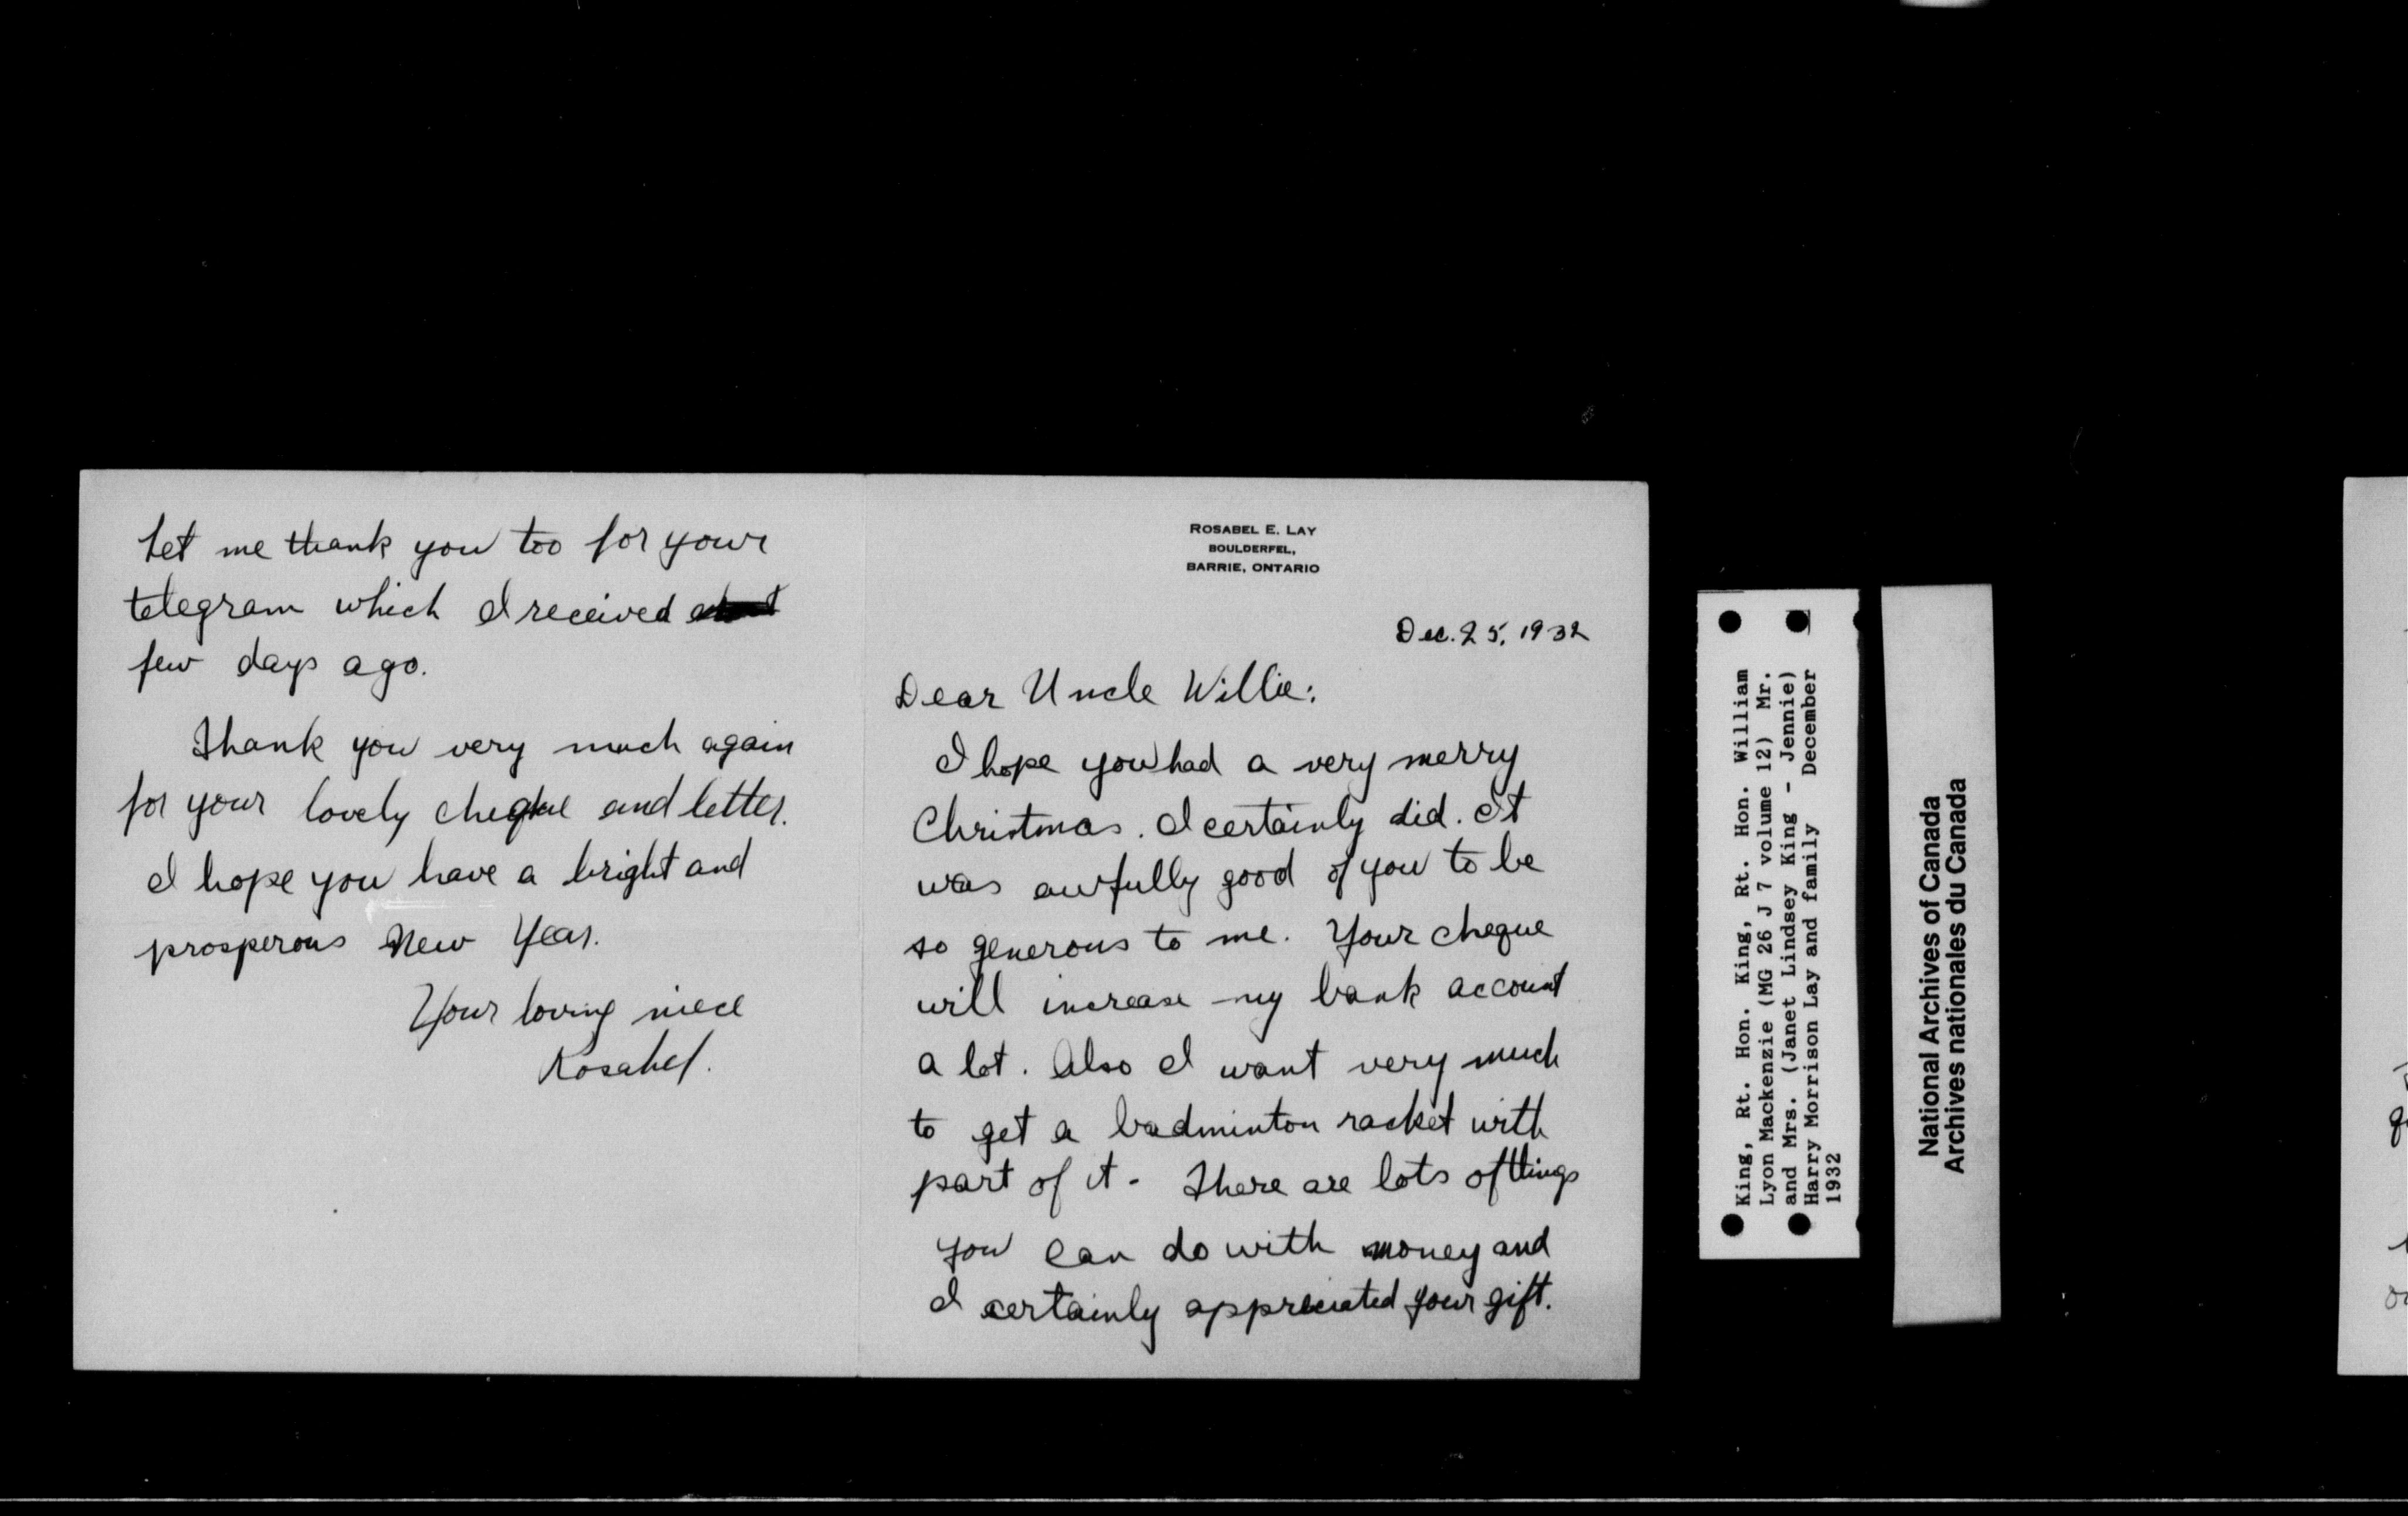 ROSABEL E. LAY
BOULDERFEL,
BARRIE, ONTARIO
Dec. 25, 1932
Dear Uncle Willie:
I hope you had a very merry
Christmas. I certainly did. It
was awfully good of you to be
so generous to me. Your cheque
will increase my bank account
a lot. Also I want very much
to get a badminton racket with
part of it - There are lots of things
you can do with money and
I certainly appreciated your gift.
Let me thank you too for your
telegram which I received
few days ago.
Thank you very much again
for your lovely cheque and letter.
I hope you have a bright and
prosperous New Year.
Your loving niece
Rosabel.
King, Rt. Hon. King, Rt. Hon. William
Lyon Mackenzie (MG 26 J 7 volume 12) Mr.
and Mrs. (Janet Lindsey King - Jennie)
Harry Morrison Lay and family December
1932
National Archives of Canada
Archives nationales du Canada